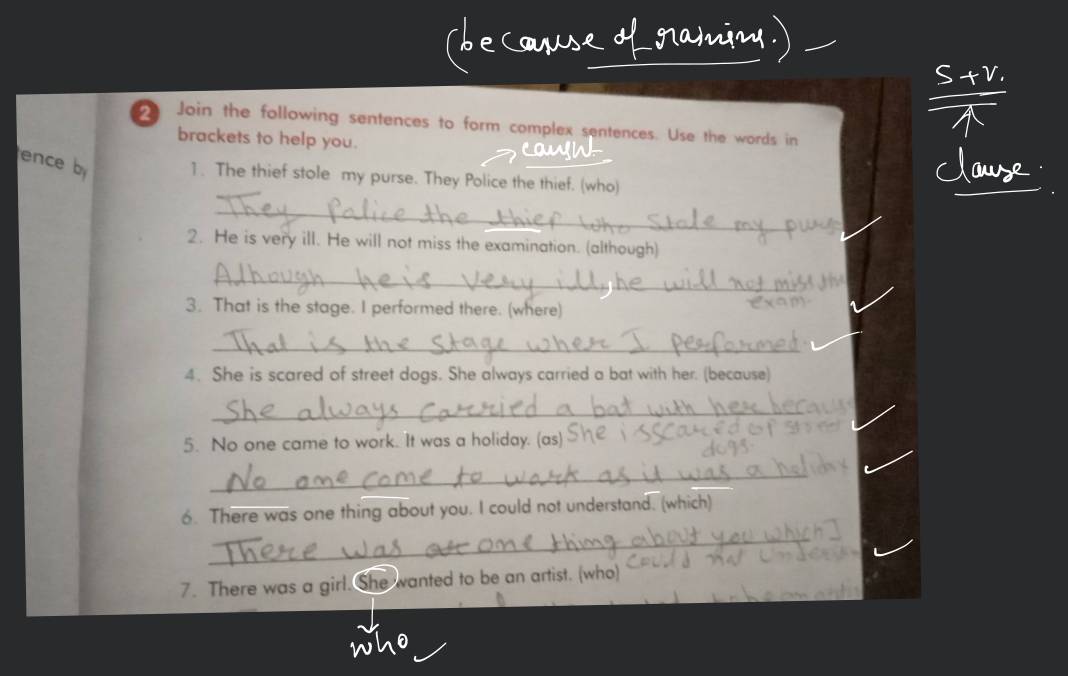 (because of raining.)
S+V.
Clause.
ence by
2 Join the following sentences to form complex sentences. Use the words in
brackets to help you.
caught
1. The thief stole my purse. They Police the thief. (who)
They Police the thief who stole my purs
2. He is very ill. He will not miss the examination. (although)
Alhough he is very ill, he will not miss the
exam.
3. That is the stage. I performed there. (where)
That is the stage where I performed.
4. She is scared of street dogs. She always carried a bat with her. (because)
She always carried a bat with her becaus
5. No one came to work. It was a holiday. (as) She is scared of street
dogs.
No one come to work as it was a holiday
6. There was one thing about you. I could not understand. (which)
There was one thing about you which I
could not unders
7. There was a girl. She wanted to be an artist. (who)
who